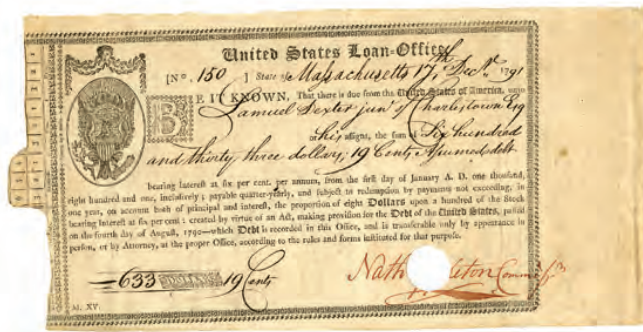 United States Loan-Office
[No. 150 ] State of Maſsachusetts 17th Decr. 1791
BE IT KNOWN, That there is due from the United States of America, unto
Samuel Dexter junr of Charlestown Esq
or his aſſigns, the ſum of Six hundred
and thirty, three dollars, 19 Cents Aſsumed debt
bearing Intereſt at ſix per cent. per annum, from the firſt day of January A. D. one thouſand,
eight hundred and one, incluſively; payable quarter-yearly, and ſubject to redemption by payments not exceeding, in
one year, on account both of principal and intereſt, the proportion of eight Dollars upon a hundred of the Stock
bearing Intereſt at ſix per cent: created by virtue of an Act, making proviſion for the Debt of the United States, paſſed
on the fourth day of Auguſt, 1790—which Debt is recorded in this Office, and is transferable only by appearance in
perſon, or by Attorney, at the proper Office, according to the rules and forms inſtituted for that purpoſe.
—633 DOLLARS 19 Cents
Nath
M. XV.